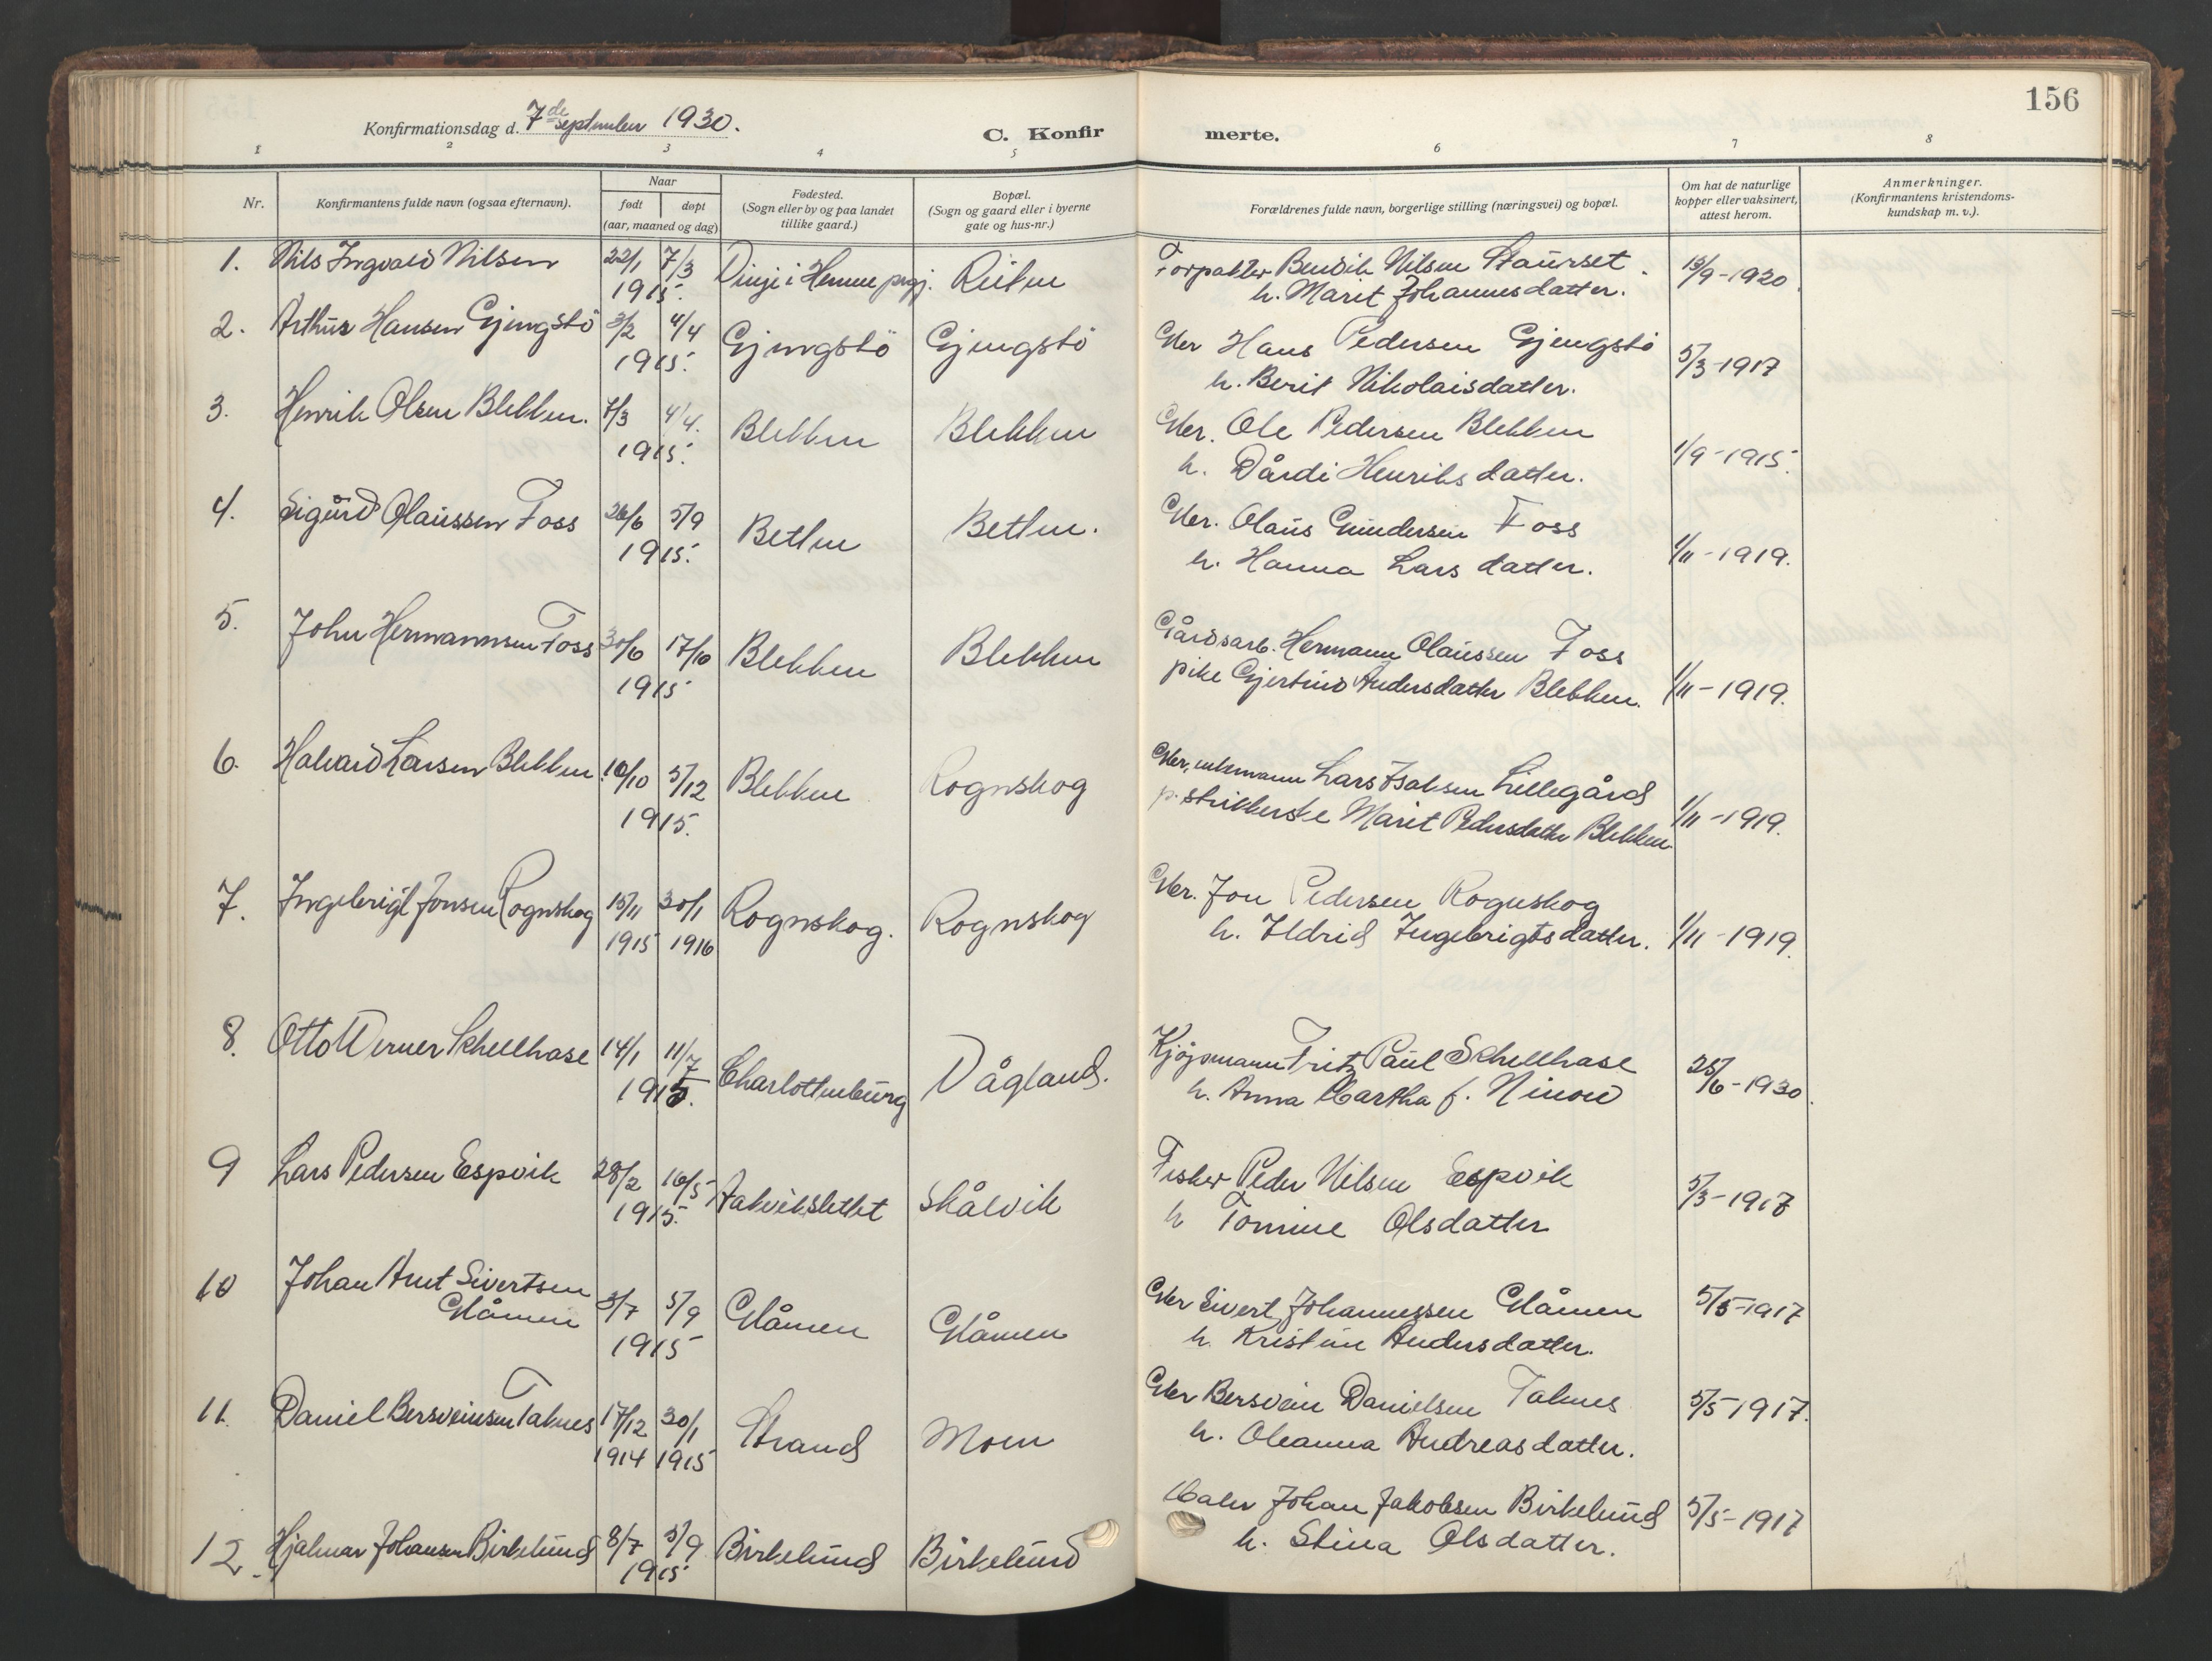 156
Konfirmationsdag d. 7de september 1930.
C. Konfirmerte.
1 2 3 4 5 6 7 8
Nr.
Konfirmantens fulde navn (ogsaa efternavn).
Naar
født døpt
(aar, maaned og dag)
Fødested.
(Sogn eller by og paa landet
tillike gaard.)
Bopæl.
(Sogn og gaard eller i byerne
gate og hus-nr.)
Forældrenes fulde navn, borgerlige stilling (næringsvei) og bopæl.
Om hat de naturlige
kopper eller vaksinert,
attest herom.
Anmerkninger.
(Konfirmantens kristendoms-
kundskap m. v.).
1. Nils Ingvald Nilsen 22/1 7/3 i Hemne prgj. Forpakter Bendik Nilsen Staurset 1920
1915. h. Marit Johannesdatter.
2. Arthur Hansen Gjengstö 3/2 4/4 Gjengstö Gjengstö Gbr Hans Pedersen Gjengstö 5/3-1917
1915. h. Berit Nikolaisdatter.
3. Henrik Olsen Blekken. 7/3 4/4. Blekken Blekken Gbr. Ole Pedersen Blekken 1/9-1915.
1915. h. Dårdi Henriksdatter.
4. Sigurd Olaussen Foss 26/6 5/9 Betten Betten. Gbr. Olaus Gundersen Foss 1/11-1919.
1915. h. Hanna Larsdatter.
5. John Hermannsen Foss 30/6 17/10 Blekken Blekken Gårdsarb. Hermann Olaussen Foss 1/11-1919.
1915 pike Gjertine Andersdatter Blekken.
6. Halvard Larsen Blekken 10/10 5/12 Blekken Rognskog Gbr, enkemann Lars Isaksen Lillegård 1/11-1919.
1915. p. strikkerske Marit Pedersdatter Blekken.
7. Ingebrigt Jonsen Rognskog 15/11 30/1 Rognskog. Rognskog Gbr. Jon Pedersen Rognskog 1/11-1919.
1915 1916 h. Ildrid Ingebrigtsdatter.
8. Otto Werner Schellhase 14/1 11/7 Charlottenburg Vågland. Kjöpmann Fritz Paul Schellhase 25/6-1930.
1915. h. Anna Martha f. Ninow
9 Lars Pedersen Espvik 28/2 16/5 Aakvikslettet Skålvik Fisker Peder Nilsen Espvik 5/3-1917
1915. h Tomine Olsdatter
10 Johan Arnt Sivertsen
Glåmen 3/7 5/9 Glåmen Glåmen Gbr Sivert Johannessen Glåmen 5/5-1917
1915 h. Kristine Andersdatter.
11. Daniel Bersveinsen Taknes 17/12 30/1 Strand Moen Gbr Bersvein Danielsen Taknes 5/5 1917.
1914 1915 h. Oleanna Andreasdatter.
12. Hjalmar Johansen Birkelund 8/7 5/9 Birkelund Birkelund Maler Johan Jakobsen Birkelund 5/5-1917
1915 h. Stina Olsdatter.